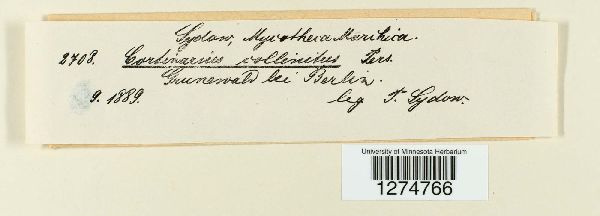 Sydow, Mycotheca Marchica.
2708. Cortinarius collinitus Pers.
Grunewald bei Berlin.
9. 1889. leg P. Sydow.
University of Minnesota Herbarium
1274766